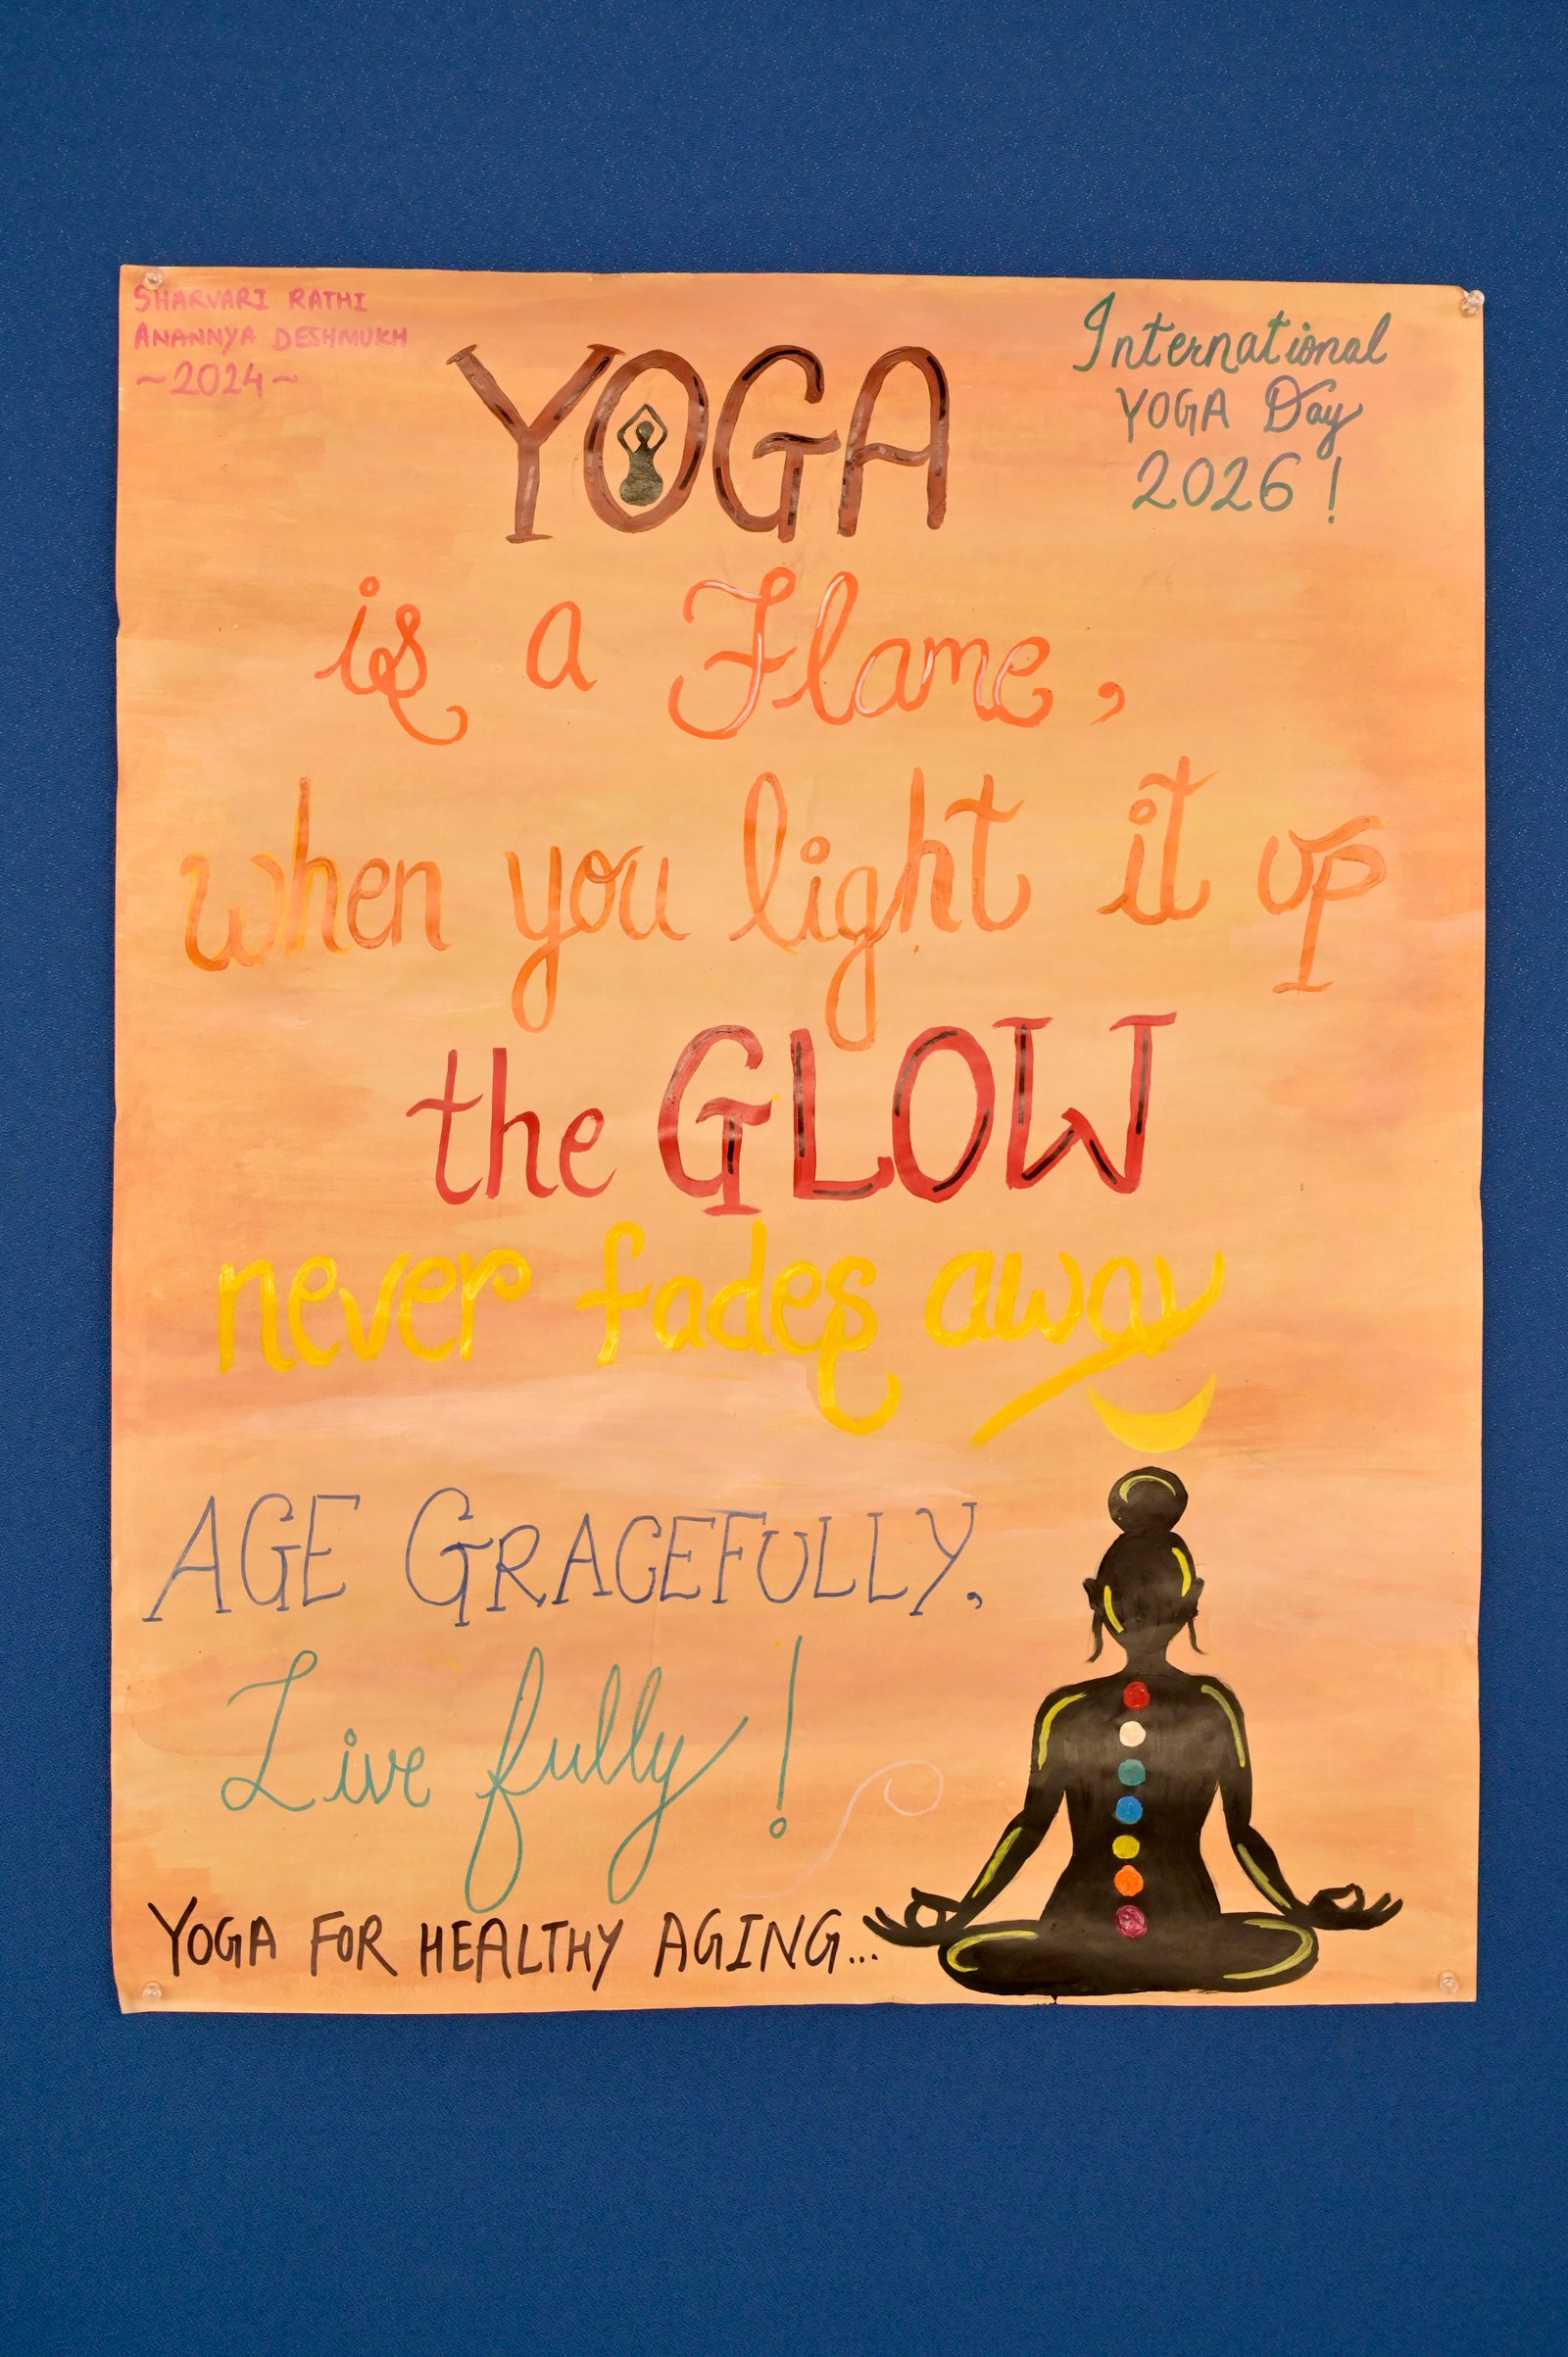 SHARVARI RATHI
ANANNYA DESHMUKH
~2024~
International
YOGA Day
2026!
YOGA
is a Flame,
when you light it up
the GLOW
never fades away
AGE GRACEFULLY,
Live fully!
YOGA FOR HEALTHY AGING...